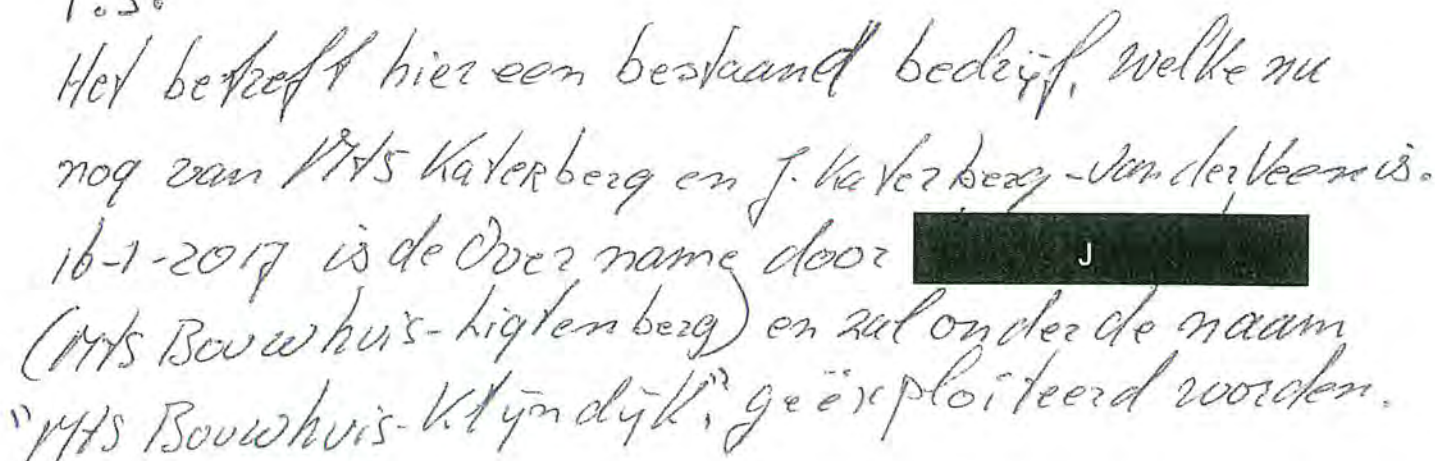 P.S.
Het betreft hier een bestaand bedrijf, welke nu
nog van Mts Katerberg en J. Katerberg-van der Veen is.
16-1-2017 is de Over name door J
(Mts Bouwhuis-Ligtenberg) en zal onder de naam
"Mts Bouwhuis-Klijndijk", geëxploiteerd worden.